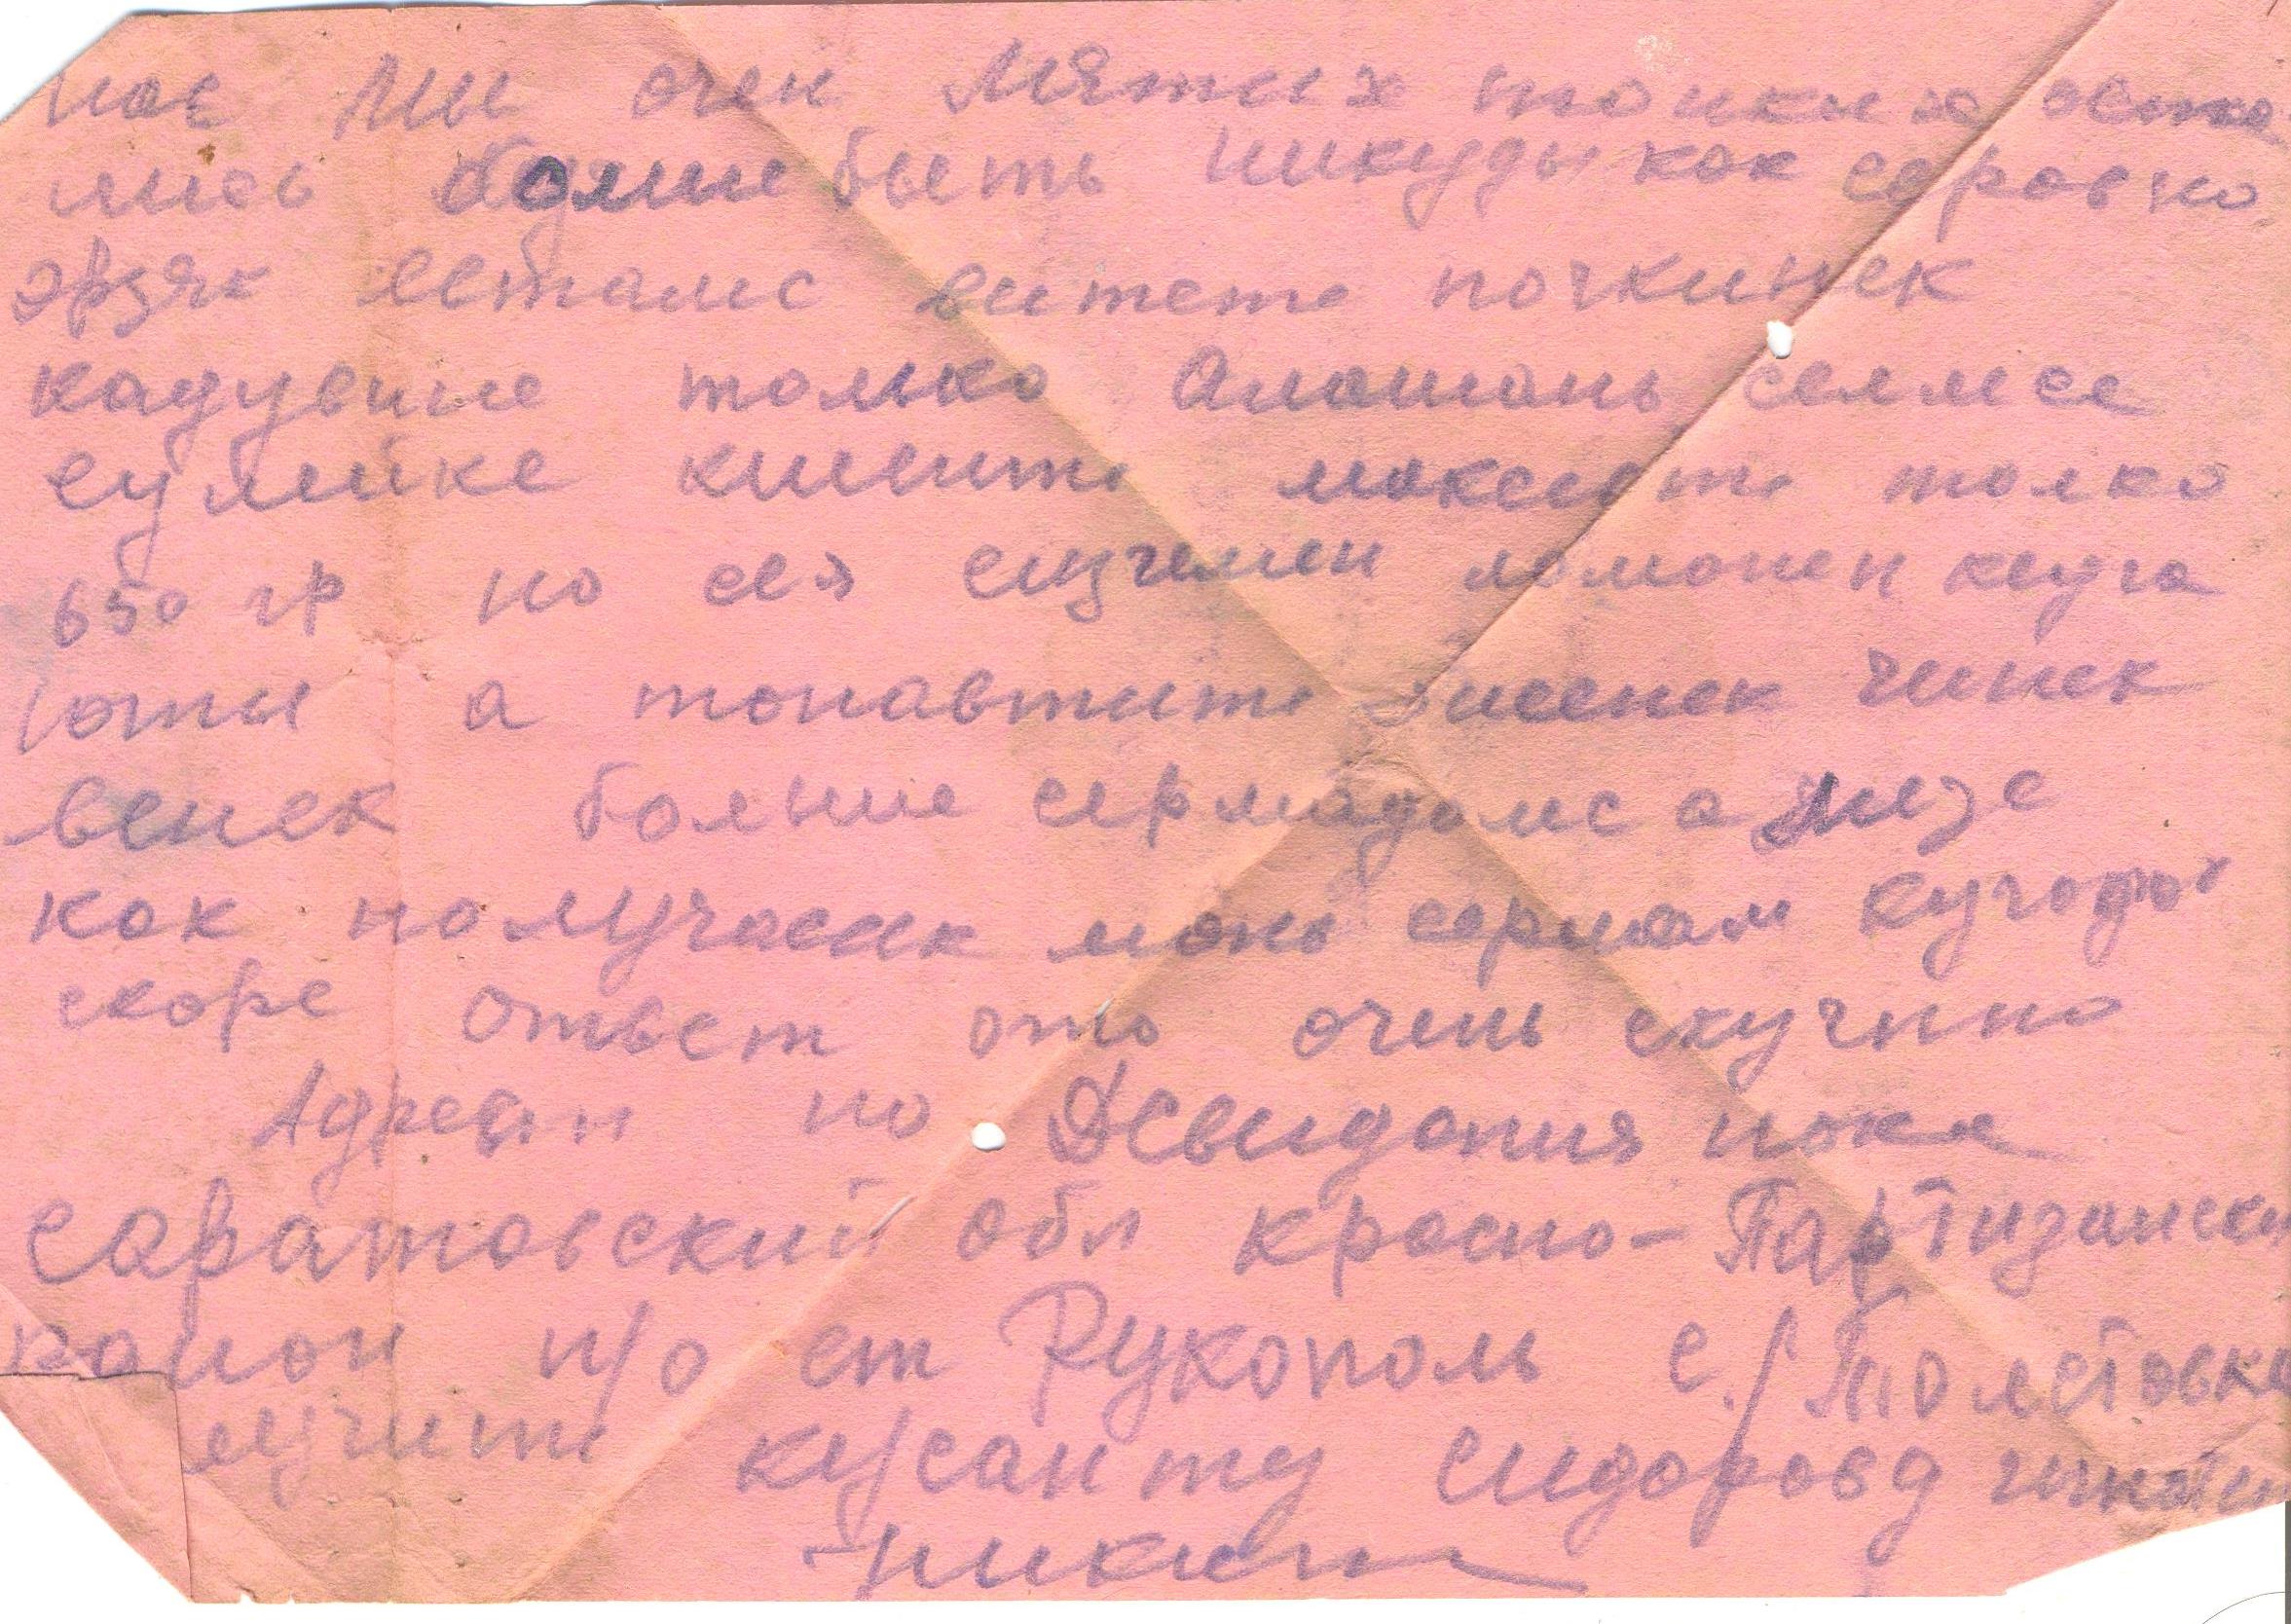 нас мы очен лятых тонких оста
лись болше быть никуды как саровно
эрзяк естамс витсте почкинек
кадувине только Алашань селмсе
сулейке кшинть максыть толко
650 гр но сея сизгемен ломонен кезга
юты а топавтить висенек чинек
венек больше сермадомс а мезе
как получасак монь сермам кучодо
скоре ответ ато очень скучно
Адресэн по Дсвидания пока
саратовский обл красно-Партизански
район п/о ст Рукополь с. Толстовка
лучить курсанту Сидорову